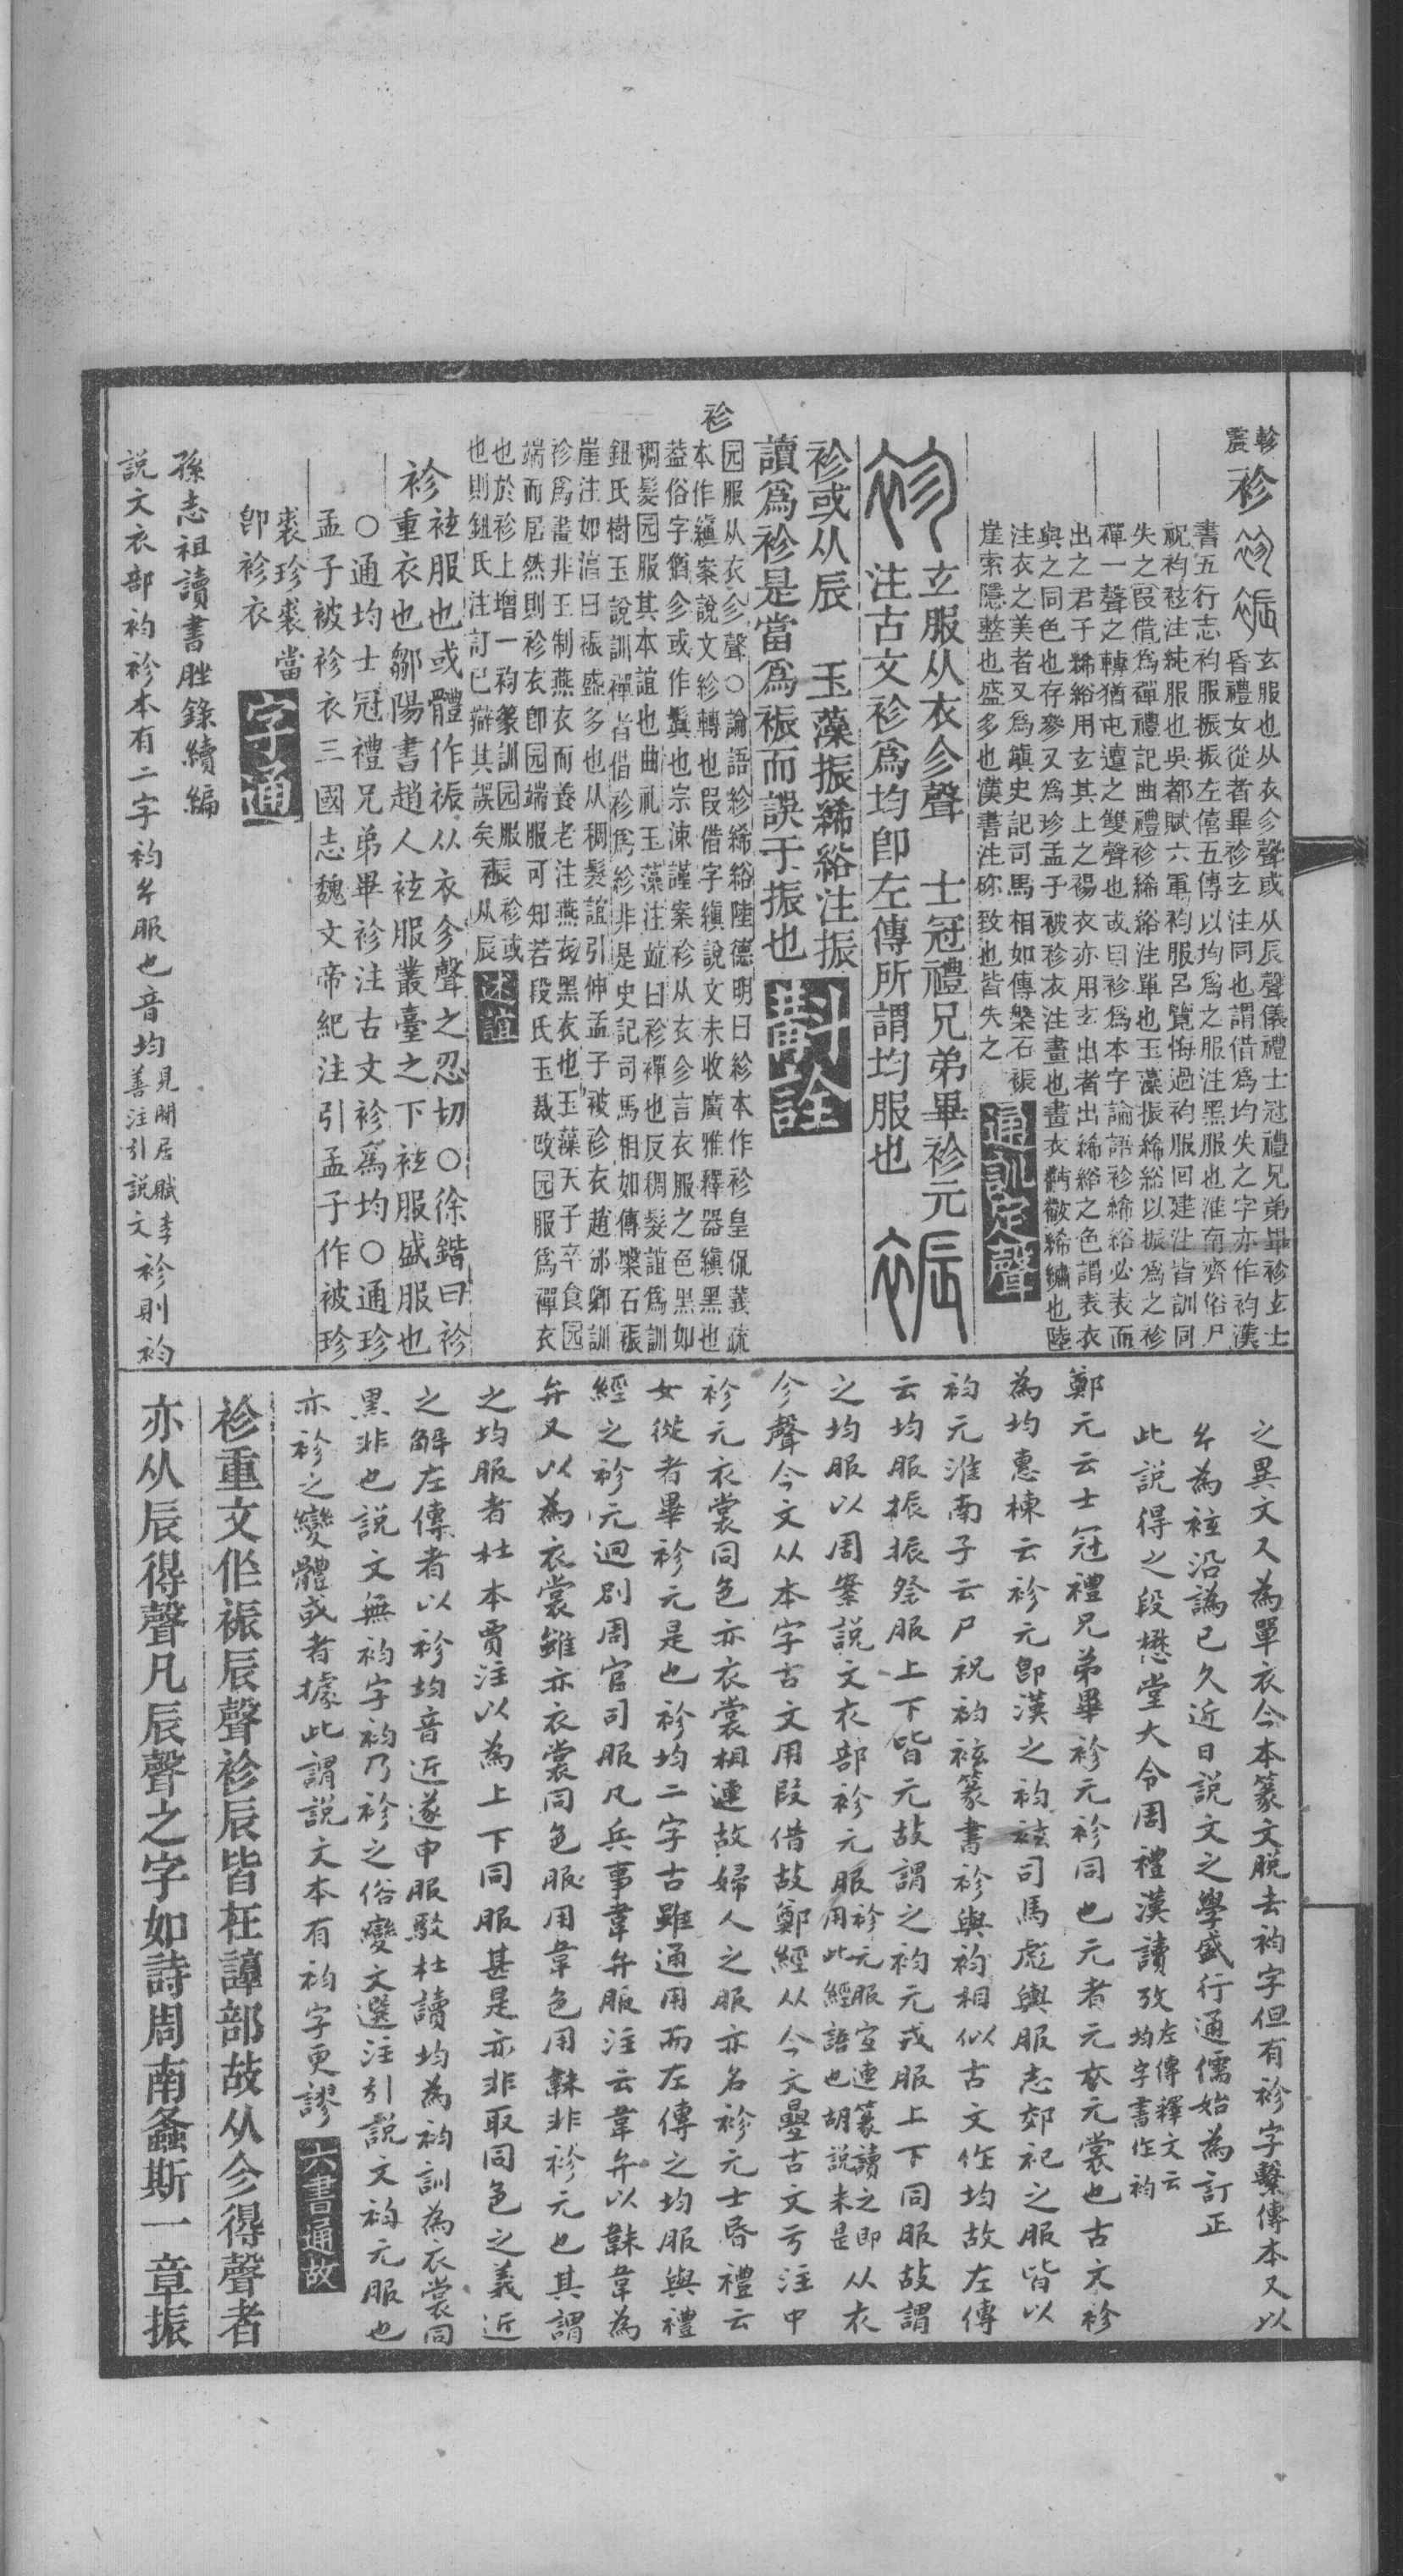 軫震
袗 袗裖 玄服也从衣㐱聲或从辰聲儀禮士冠禮兄弟畢袗玄士
昏禮女從者畢袗玄注同也謂借爲均失之字亦作袀漢
書五行志袀服振振左僖五傳以均爲之服注黑服也淮南齊俗尸
祝袀袨注純服也吳都賦六軍袀服呂覽悔過袀服回建注皆訓同
失之叚借爲禪禮記曲禮袗絺綌注單也玉藻振絺綌以振爲之袗
禪一聲之轉猶屯邅之雙聲也或曰袗爲本字論語袗絺綌必表而
出之君子絺綌用玄其上之裼衣亦用玄出者出絺綌之色謂表衣
與之同色也存參又爲珍孟子被袗衣注畫也畫衣黼黻絺繡也陸
注衣之美者又爲鎭史記司馬相如傳槃石裖
崖索隱整也盛多也漢書注砛致也皆失之
通訓定聲
袗 玄服从衣㐱聲 士冠禮兄弟畢袗元
注古文袗爲均卽左傳所謂均服也 裖
袗或从辰 玉藻振絺綌注振
讀爲袗是當爲裖而誤于振也
斠詮
袗
园服从衣㐱聲○論語紾絺綌陸德明曰紾本作袗皇侃義疏
本作縝案說文紾轉也叚借字縝說文未收廣雅釋器縝黑也
葢俗字猶㐱或作鬒也宗涑謹案袗从衣㐱言衣服之色黑如
稠髮园服其本誼也曲礼玉藻注竝曰袗襌也反稠髮誼爲訓
鈕氏樹玉說訓襌者借袗爲紾非是史記司馬相如傳槃石裖
崖注如湻曰裖盛多也从稠髮誼引伸孟子被袗衣趙邠卿訓
袗爲畫非王制燕衣而養老注燕衣黑衣也玉藻天子卒食园
端而居然則袗衣卽园端服可知若段氏玉裁改园服爲襌衣
也於袗上增一袀篆訓园服 裖袗或
也則鈕氏注訂已辯其誤矣 从辰
述誼
袗 袨服也或體作裖从衣㐱聲之忍切○徐鍇曰袗
重衣也鄒陽書趙人袨服叢臺之下袨服盛服也
○通均士冠禮兄弟畢袗注古文袗爲均○通珍
孟子被袗衣三國志魏文帝紀注引孟子作被珍
裘珍裘當
卽袗衣
字通
孫志祖讀書脞錄續編
說文衣部袀袗本有二字袀幺服也音均見閒居賦李善注引說文袗則袀
之異文又為單衣今本篆文脫去袀字但有袗字繫傳本又以
幺為袨沿譌已久近日說文之學盛行通儒始為訂正
此說得之段懋堂大令周禮漢讀攷左傳釋文云均字書作袀
鄭元云士冠禮兄弟畢袗元袗同也元者元衣元裳也古文袗
為均惠棟云袗元卽漢之袀袨司馬彪輿服志郊祀之服皆以
袀元淮南子云尸祝袀袨篆書袗與袀相似古文作均故左傳
云均服振振祭服上下皆元故謂之袀元戎服上下同服故謂
之均服以周案說文衣部袗元服袗元服宜連篆讀之即用此經語也胡說未是从衣
㐱聲今文从本字古文用叚借故鄭經从今文疊古文于注中
袗元衣裳同色亦衣裳相連故婦人之服亦名袗元士昏禮云
女從者畢袗元是也袗均二字古雖通用而左傳之均服與禮
經之袗元迥別周官司服凡兵事韋弁服注云韋弁以韎韋為
弁又以為衣裳雖亦衣裳同色服用韋色用韎非袗元也其謂
之均服者杜本賈注以為上下同服甚是亦非取同色之義近
之解左傳者以袗均音近遂申服駮杜讀均為袀訓為衣裳同
黑非也說文無袀字袀乃袗之俗變文選注引說文袀元服也
亦袗之變體或者據此謂說文本有袀字更謬
六書通故
袗重文作裖辰聲袗辰皆在諄部故从㐱得聲者
亦从辰得聲凡辰聲之字如詩周南螽斯一章振